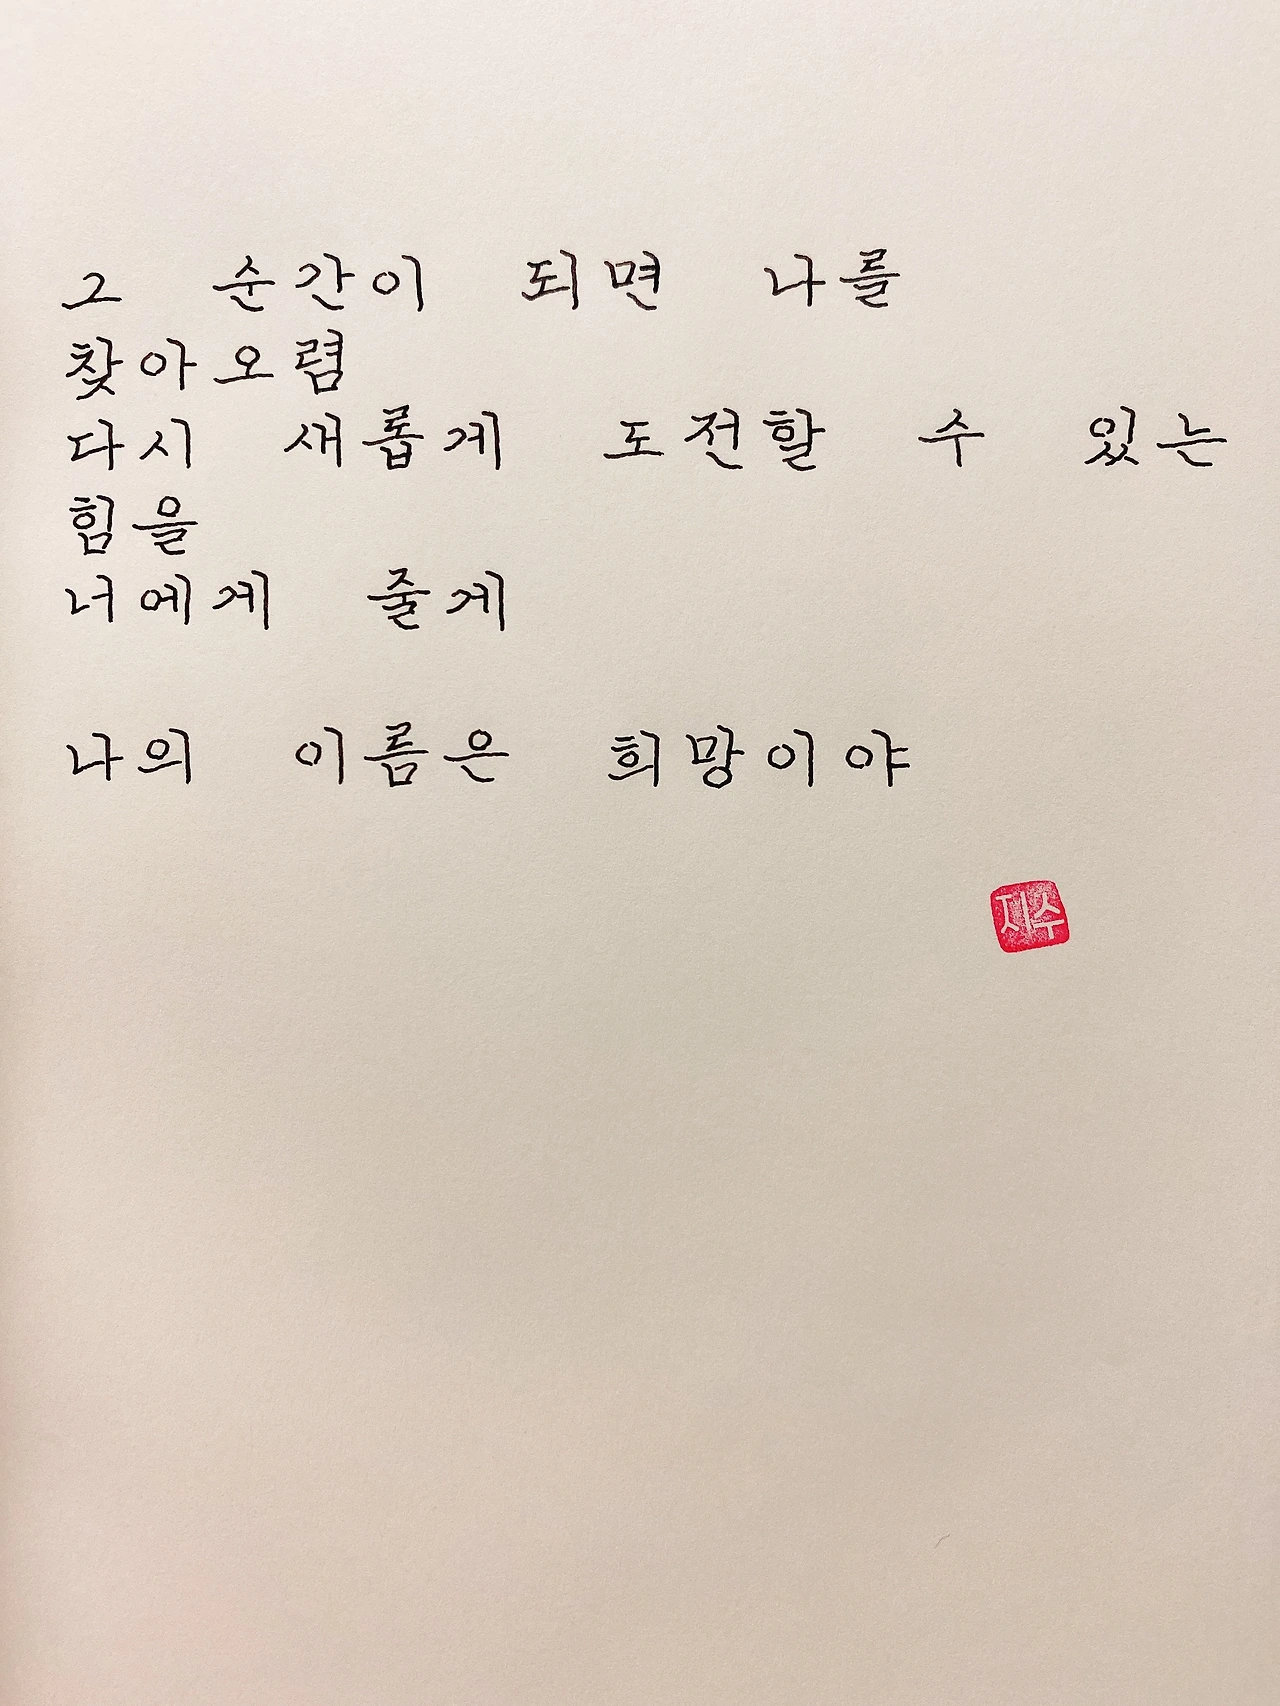 그 순간이 되면 나를
찾아오렴
다시 새롭게 도전할 수 있는
힘을
너에게 줄게
나의 이름은 희망이야
지수